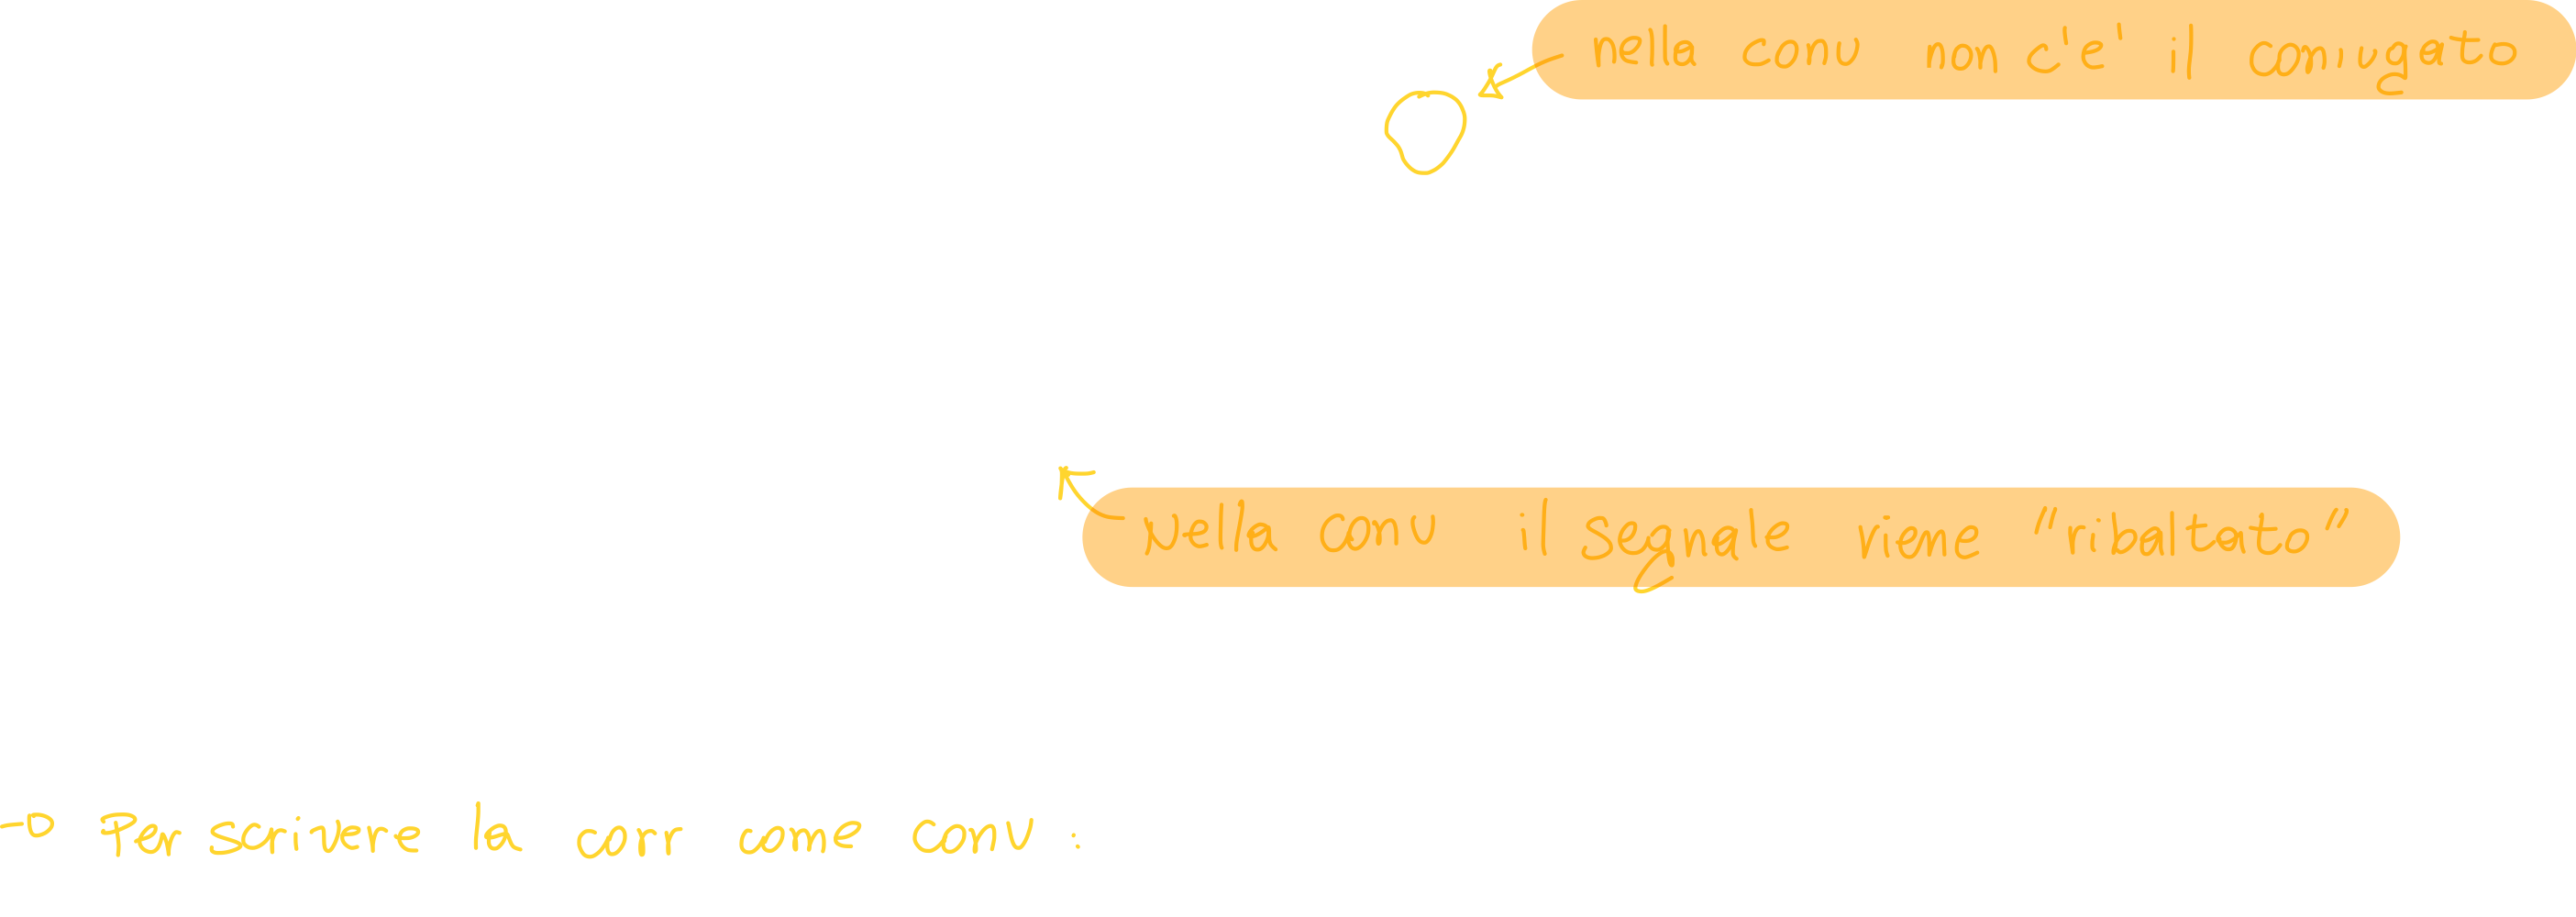 nella conv non c'e' il coniugato
Nella conv il segnale viene "ribaltato"
Per scrivere la corr come conv :